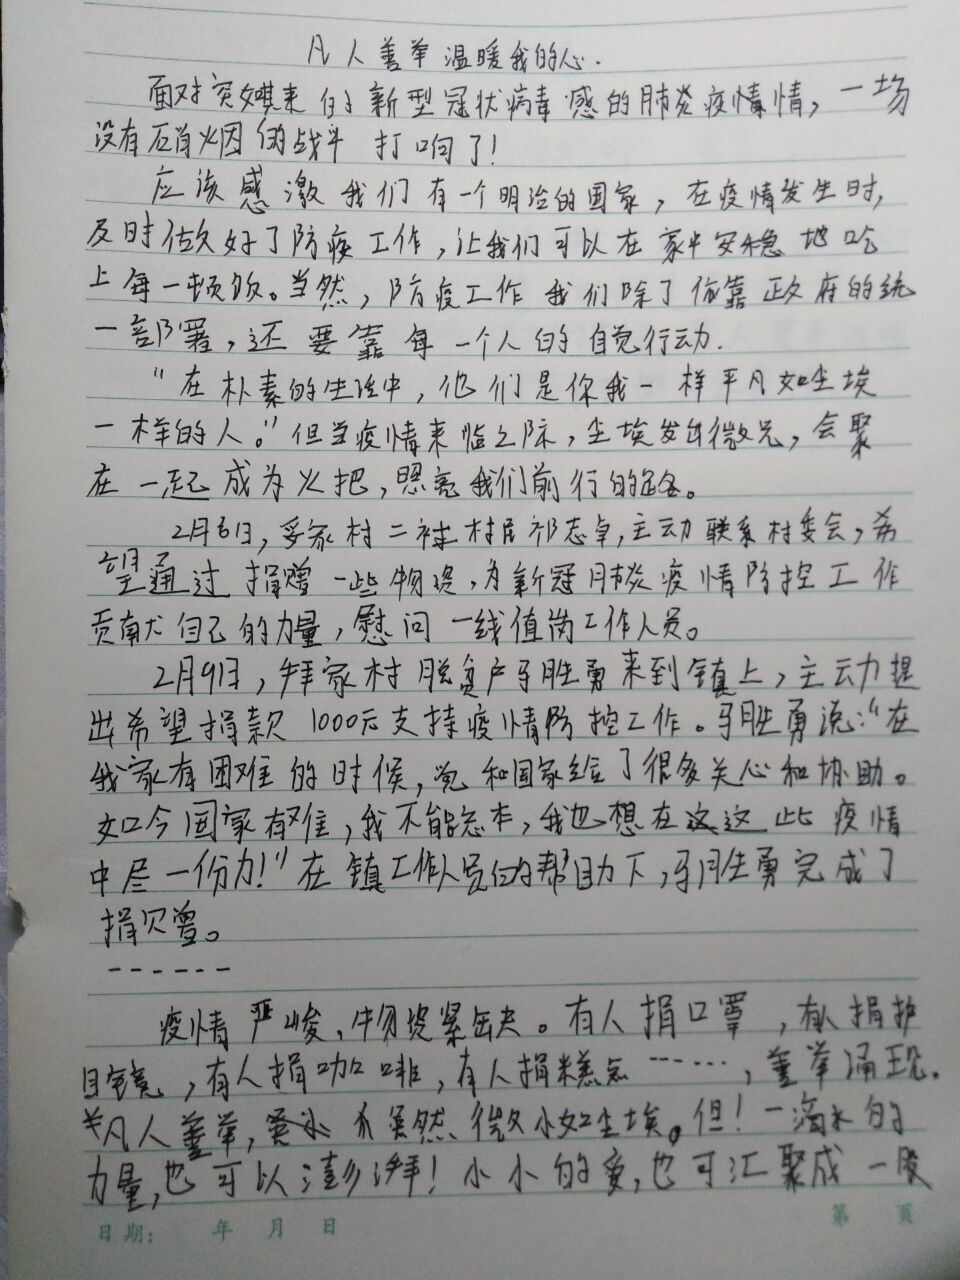 凡人善举温暖我的心.
面对突如其来的新型冠状病毒感的肺炎疫情情，一场
没有硝烟的战斗打响了！
应该感激我们有一个明治的国家，在疫情发生时，
及时做好了防疫工作，让我们可以在家中安稳地吃
上每一顿饭。当然，防疫工作我们除了依靠政府的统
一部署，还要靠每一个人的自觉行动.
“在朴素的生活中，他们是你我一样平凡如尘埃
一样的人。”但当疫情来临之际，尘埃发出微光，会聚
在一起成为火把，照亮我们前行的路。
2月6日，妥家村二社村民祁志卓，主动联系村委会，希
望通过捐赠一些物资，为新冠肺炎疫情防控工作
贡献自己的力量，慰问一线值岗工作人员。
2月9日，拜家村脱贫户马胜勇来到镇上，主动提
出希望捐款1000元支持疫情防控工作。马胜勇说：“在
我家有困难的时候，党和国家给了很多关心和协助。
如今国家有难，我不能忘本，我也想在这这些疫情
中尽一份力！”在镇工作人员的帮助下，马胜勇完成了
捐赠。
------
疫情严峻，物资紧缺。有人捐口罩，有人捐护
目镜，有人捐咖啡，有人捐糕点……，善举涌现.
凡人善举，虽然微小如尘埃。但！一滴水的
力量，也可以澎湃！小小的爱，也可汇聚成一股
日期： 年 月 日 第 页